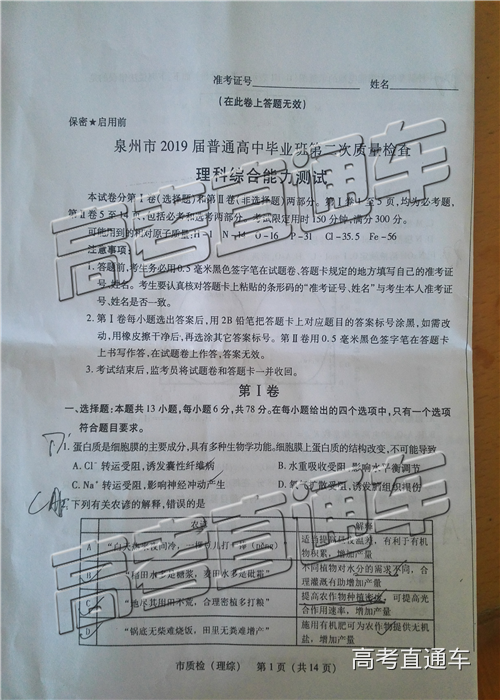 准考证号 姓名
(在此卷上答题无效)
保密★启用前
泉州市2019届普通高中毕业班第二次质量检查
理科综合能力测试
本试卷分第Ⅰ卷(选择题)和第Ⅱ卷(非选择题)两部分。第Ⅰ卷1至5页,均为必考题,
第Ⅱ卷5至14页,包括必考和选考两部分。考试限定用时150分钟,满分300分。
可能用到的相对原子质量:H-1 N O-16 P-31 Cl-35.5 Fe-56
注意事项:
1.答题前,考生务必用0.5毫米黑色签字笔在试题卷、答题卡规定的地方填写自己的准考证
号、姓名。考生要认真核对答题卡上粘贴的条形码的“准考证号、姓名”与考生本人准考证
号、姓名是否一致。
2.第Ⅰ卷每小题选出答案后,用2B铅笔把答题卡上对应题目的答案标号涂黑,如需改
动,用橡皮擦干净后,再选涂其它答案标号。第Ⅱ卷用0.5毫米黑色签字笔在答题卡
上书写作答,在试题卷上作答,答案无效。
3.考试结束后,监考员将试题卷和答题卡一并收回。
第Ⅰ卷
一、选择题:本题共13小题,每小题6分,共78分。在每小题给出的四个选项中,只有一个选项
符合题目要求。
D
1.蛋白质是细胞膜的主要成分,具有多种生物学功能。细胞膜上蛋白质的结构改变,不可能导致
A.Cl⁻转运受阻,诱发囊性纤维病 B.水重吸收受阻,影响水平衡调节
C.Na⁺转运受阻,影响神经冲动产生 D.氧气扩散受阻,诱发肺组织损伤
下列有关农谚的解释,错误的是
农谚 解释
A “白天热来夜间冷,一棵豆儿打一捧(pěng)” 适当提高昼夜温差,有利于有机
物积累,增加产量
B “稻田水多是糖浆,麦田水多是砒霜” 不同植物对水分的需求不同,合
理灌溉有助增加产量
C “地尽其用田不荒,合理密植多打粮” 提高农作物种植密度,可提高光
合作用速率,增加产量
D “锅底无柴难烧饭,田里无粪难增产” 施用有机肥可为农作物提供无机
盐,增加产量
市质检(理综) 第1页(共14页)
高考直通车
高考直通车
高考直通车